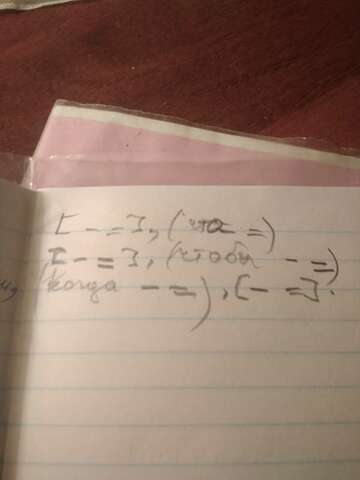 [ – = ], (что =)
[ – = ], (чтобы – =)
(Когда – =), [ – = ].